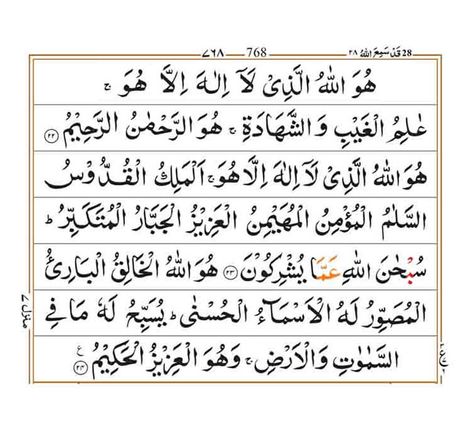 ٧٦٨ - 768 28 قَدْ سَمِعَ اللهُ ٢٨
هُوَ اللهُ الَّذِىْ لَاۤ اِلٰهَ اِلَّا هُوَ ۚ
عٰلِمُ الْغَيْبِ وَالشَّهَادَةِ ۚ هُوَ الرَّحْمٰنُ الرَّحِيْمُ ﴿٢٢﴾
هُوَ اللهُ الَّذِىْ لَاۤ اِلٰهَ اِلَّا هُوَ ۚ اَلْمَلِكُ الْقُدُّوْسُ
السَّلٰمُ الْمُؤْمِنُ الْمُهَيْمِنُ الْعَزِيْزُ الْجَبَّارُ الْمُتَكَبِّرُ ؕ
سُبْحٰنَ اللهِ عَمَّا يُشْرِكُوْنَ ﴿٢٣﴾ هُوَ اللهُ الْخَالِقُ الْبَارِئُ
الْمُصَوِّرُ لَهُ الْاَسْمَآءُ الْحُسْنٰى ؕ يُسَبِّحُ لَهٗ مَا فِى
السَّمٰوٰتِ وَالْاَرْضِ ۚ وَهُوَ الْعَزِيْزُ الْحَكِيْمُ ﴿٢٤﴾ ع
منزل ٧